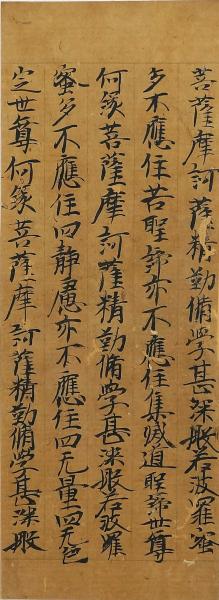 菩薩摩訶薩精勤脩學甚深般若波羅蜜
多不應住苦聖諦亦不應住集滅道聖諦世尊
何緣菩薩摩訶薩精勤脩學甚深般若波羅
蜜多不應住四靜慮亦不應住四无量四无色
定世尊何緣菩薩摩訶薩精勤脩學甚深般